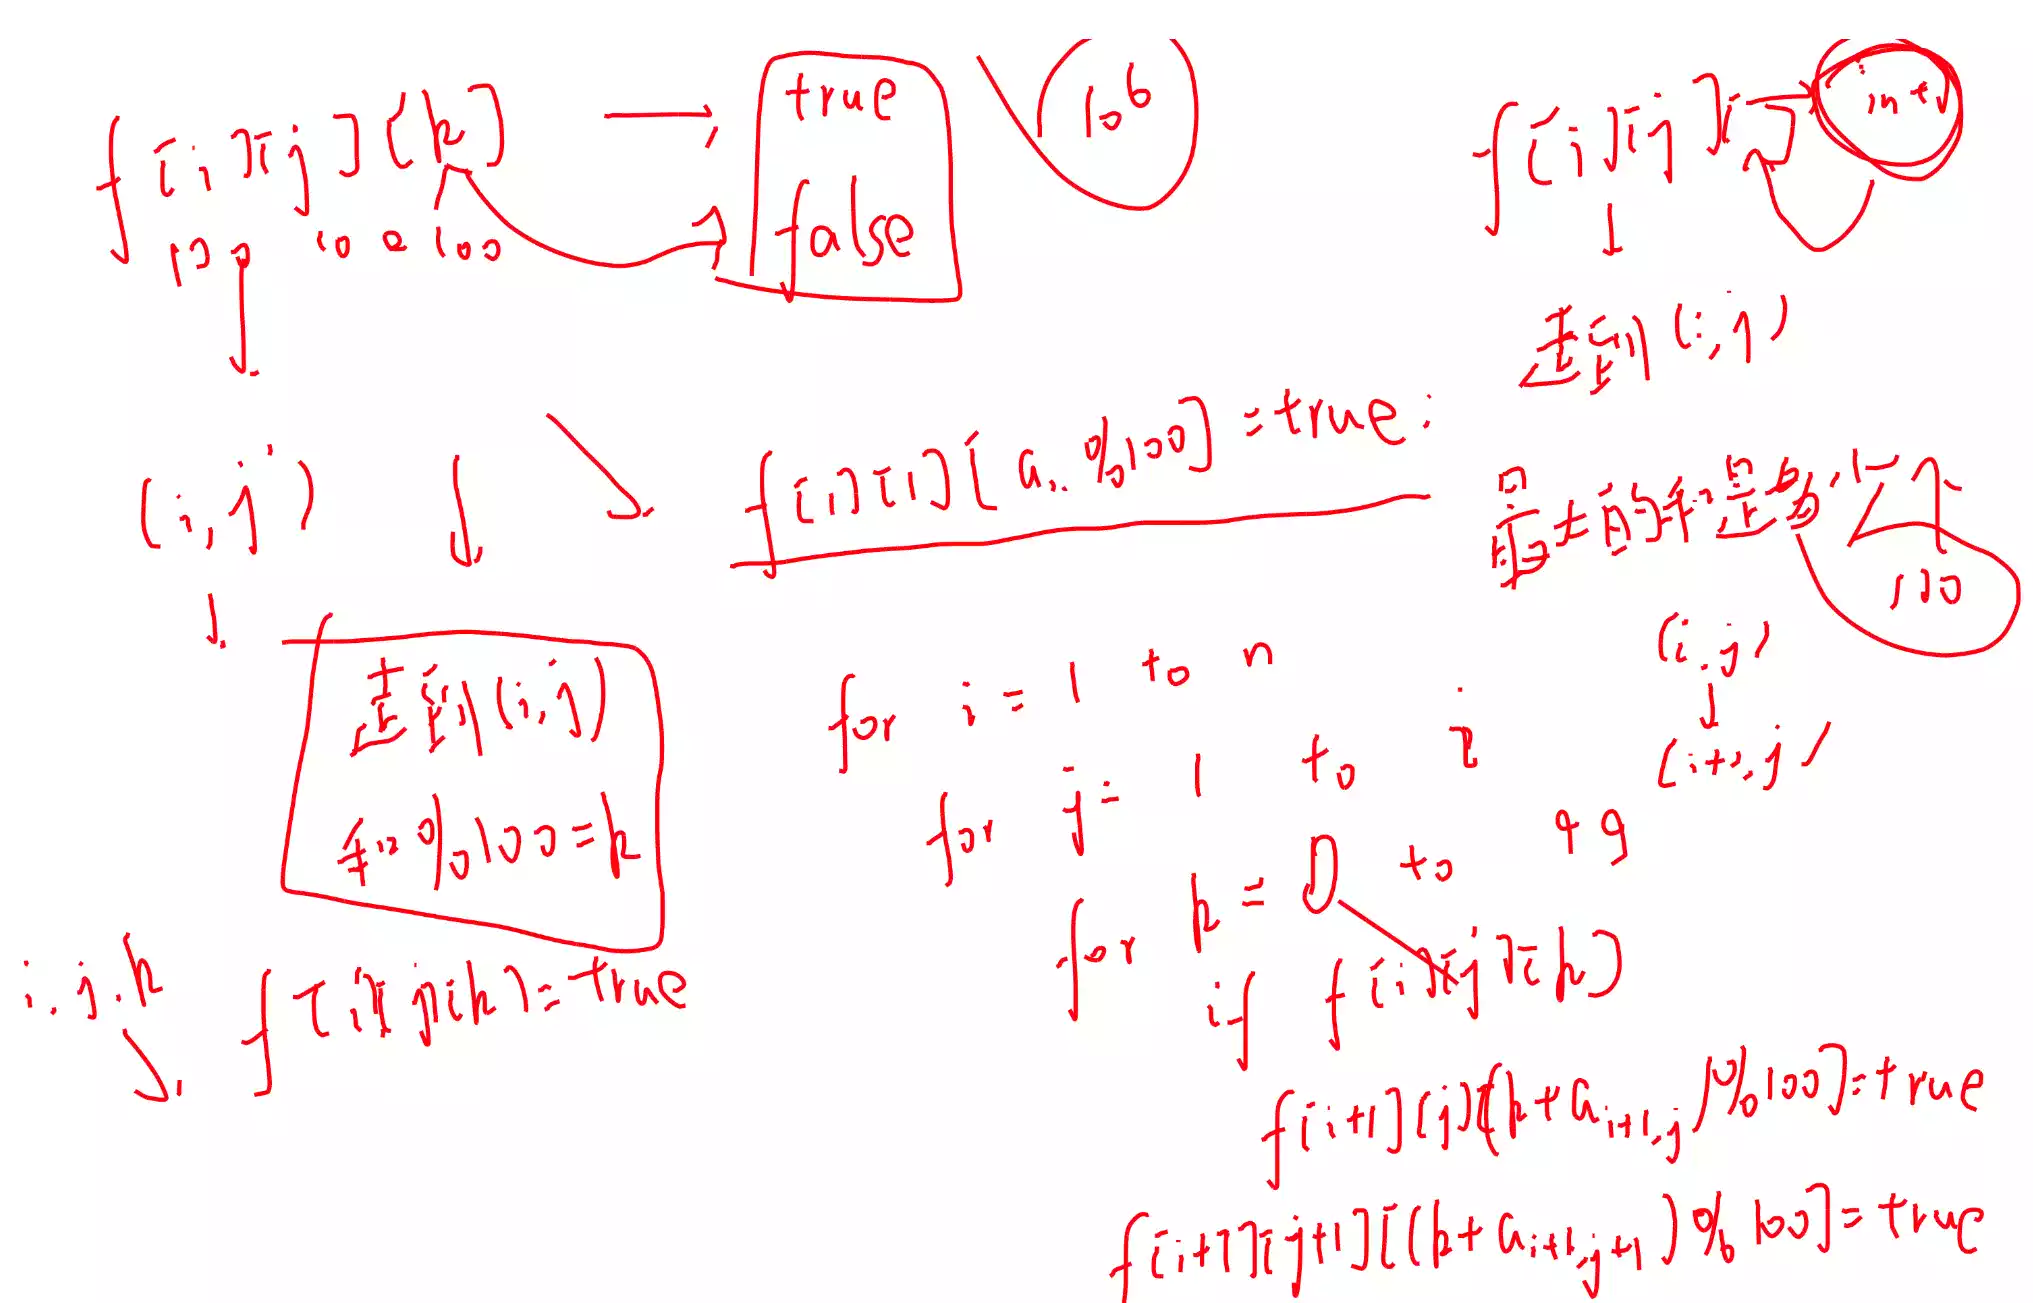 f[i][j][k]
100 100 100
true
false
10^6
f[i][j]
int
走到(i,j)
最大的和是多少
100
(i,j)
f[1][1][a₁₁%100]=true;
走到(i,j)
和%100=k
i,j,k
f[i][j][k]=true
(i,j)
(i+1,j)
for i=1 to n
for j=1 to i
for k=0 to 99
if f[i][j][k]
f[i+1][j][(k+a_{i+1,j})%100]=true
f[i+1][j+1][(k+a_{i+1,j+1})%100]=true